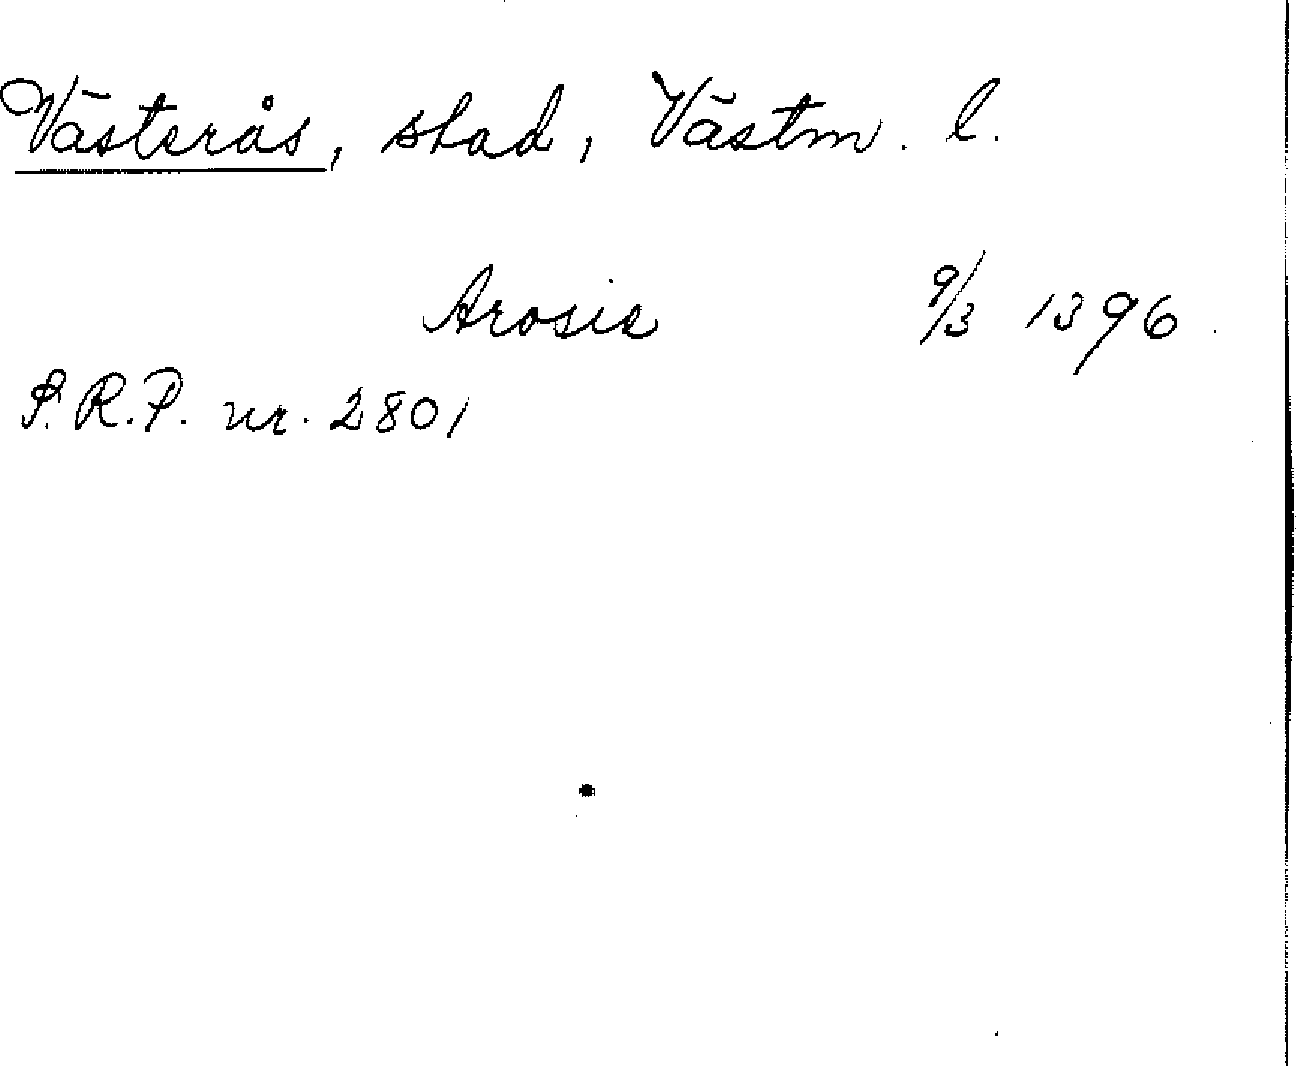 Västerås, stad, Västm. l.
Arosie 9/3 1396.
S.R.P. nr. 2801